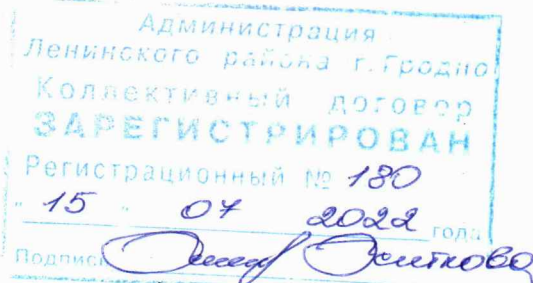 Администрация
Ленинского района г.Гродно
Коллективный договор
ЗАРЕГИСТРИРОВАН
Регистрационный № 180
"15" 07 2022 года
Подпись